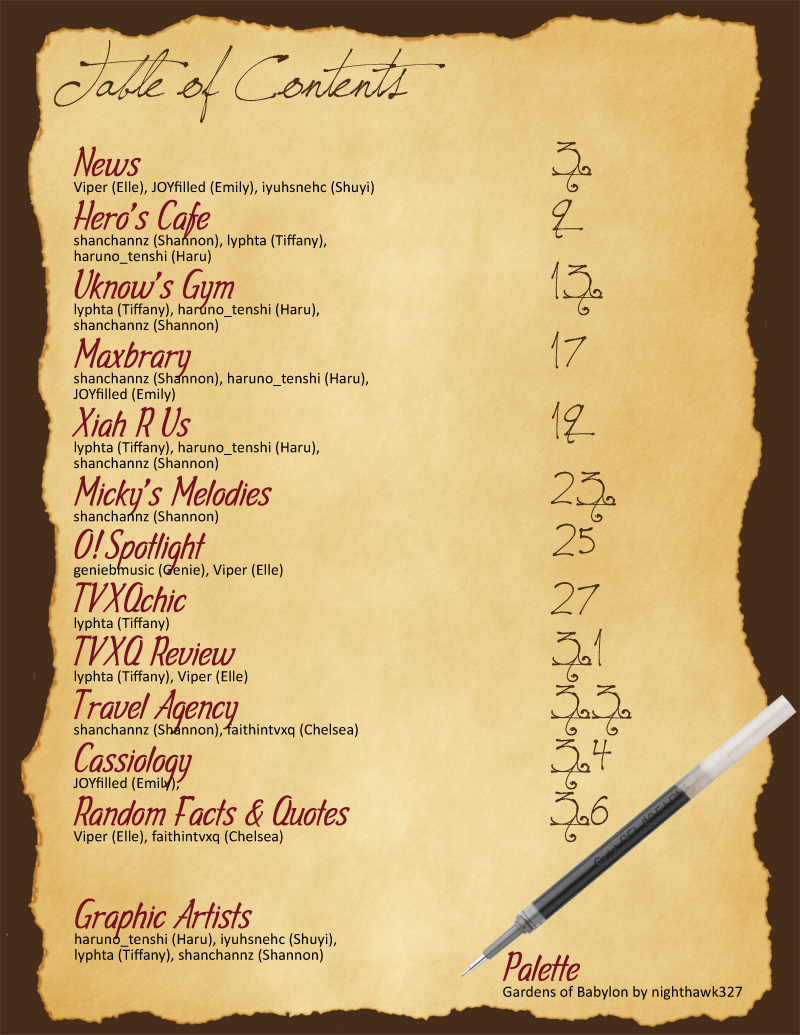 Table of Contents
News 3
Viper (Elle), JOYfilled (Emily), iyuhsnehc (Shuyi)
Hero's Cafe 9
shanchannz (Shannon), lyphta (Tiffany),
haruno_tenshi (Haru)
Uknow's Gym 13
lyphta (Tiffany), haruno_tenshi (Haru),
shanchannz (Shannon)
Maxbrary 17
shanchannz (Shannon), haruno_tenshi (Haru),
JOYfilled (Emily)
Xiah R Us 19
lyphta (Tiffany), haruno_tenshi (Haru),
shanchannz (Shannon)
Micky's Melodies 23
shanchannz (Shannon)
O! Spotlight 25
geniebmusic (Genie), Viper (Elle)
TVXQchic 27
lyphta (Tiffany)
TVXQ Review 31
lyphta (Tiffany), Viper (Elle)
Travel Agency 33
shanchannz (Shannon), faithintvxq (Chelsea)
Cassiology 34
JOYfilled (Emily),
Random Facts & Quotes 36
Viper (Elle), faithintvxq (Chelsea)
Graphic Artists
haruno_tenshi (Haru), iyuhsnehc (Shuyi),
lyphta (Tiffany), shanchannz (Shannon)
Palette
Gardens of Babylon by nighthawk327